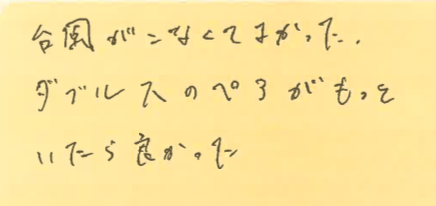 台風がこなくてよかった.
ダブルスのペアがもっと
いたら良かった